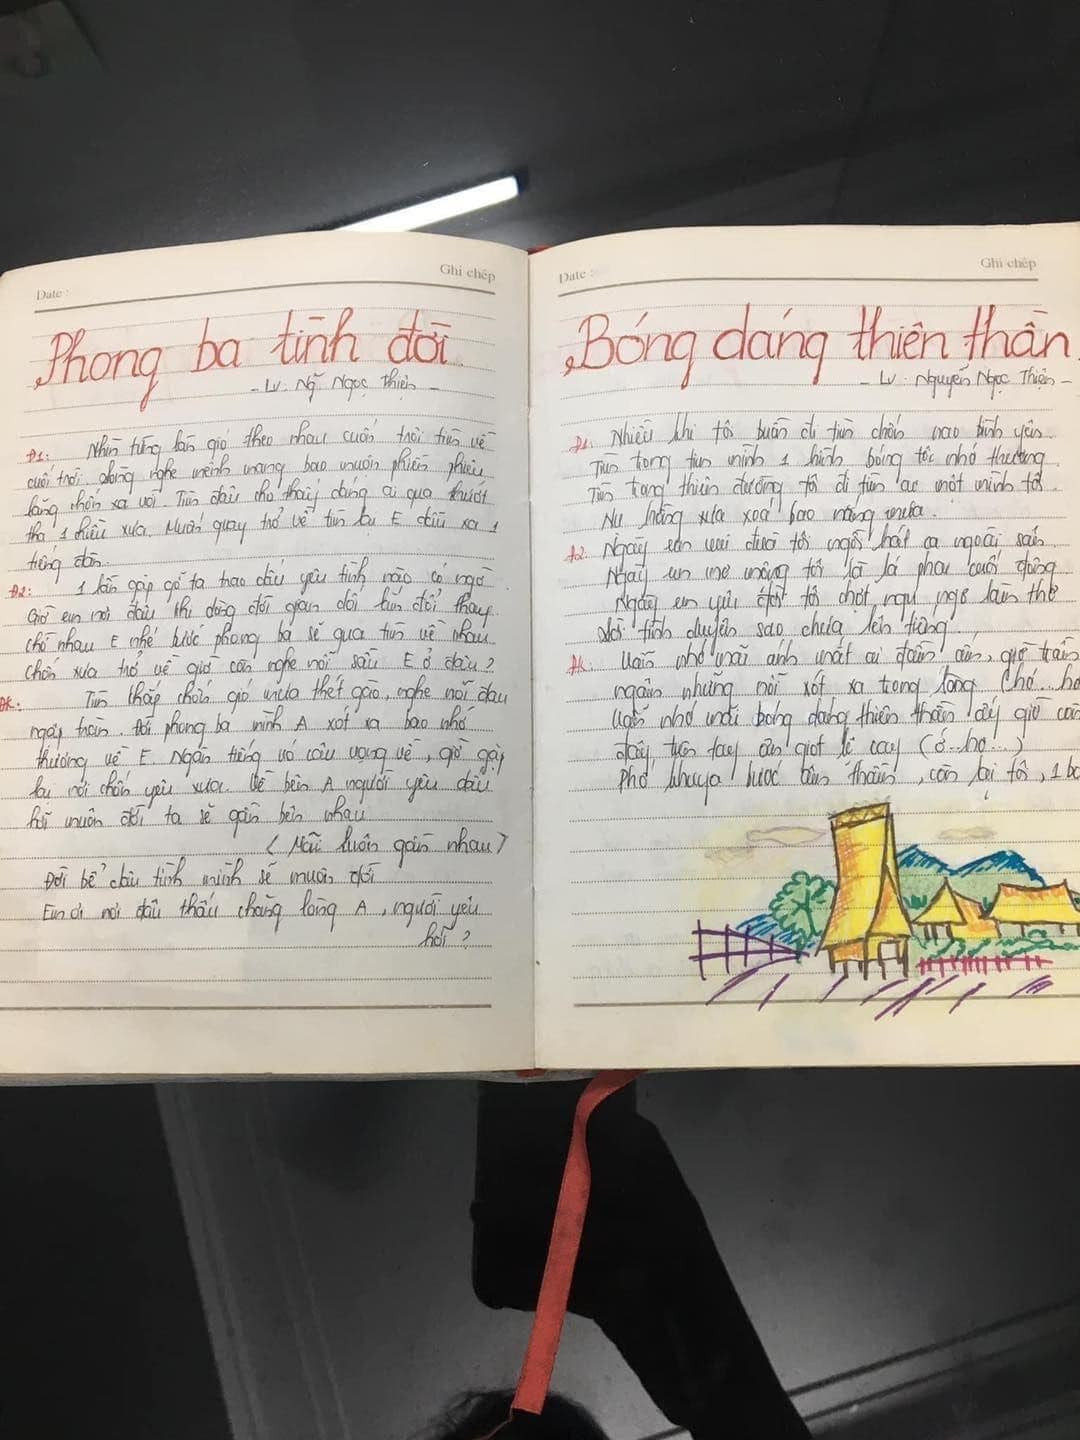 Date :
Ghi chép
Phong ba tình đời
- Lv. Ng~ Ngọc Thiện -
Đ1: Nhìn từng làn gió theo nhau cuối trời tìm về
cuối trời. dòng nghe mênh mang bao muôn phiền
lặng nhớ xa vời. Tìm đâu cho thấy dáng ai qua thướt
tha 1 chiều xưa. Muốn quay trở về tìm lại E dấu xa 1
tiếng đàn.
Đ2: 1 lần gặp gỡ ta trao dấu yêu tình nào có ngờ
Giờ em nơi đâu thì dòng đời gian dối hẳn đổi thay
chờ nhau E nhé bước phong ba sẽ qua tìm về nhau
chốn xưa trở về giờ còn nghe nỗi sầu E ở đâu?
ĐK: Tìm thấp chốn gió mưa thét gào, nghe nỗi đau
ngày tròn. đời phong ba mình A xót xa bao nhớ
thương về E. Ngân tiếng vó câu vọng về, giờ gặp
lại nơi chốn yêu xưa. Về bên A người yêu dấu
hỡi muôn đời ta sẽ gần bên nhau
(Mãi luôn gần nhau)
Đời bể dâu tình mình sẽ muôn đời
Em ơi nơi đâu thấu chăng lòng A, người yêu
hỡi?
Date :
Ghi chép
Bóng dáng thiên thần
- Lv. Nguyễn Ngọc Thiện -
Đ1. Nhiều khi tôi buồn đi tìm chốn nao bình yên
Tìm trong tim mình 1 hình bóng tóc nhớ thương
Tìm trong thiên đường tôi đi tìm ai một mình tôi
Nụ hồng xưa xoá bao nắng mưa.
Đ2. Ngày em vui đùa tôi ngồi hát ca ngoài sân
Ngày em mơ mộng tôi là lá phai cuối đông
Ngày em yêu đời tôi chợt ngu ngơ làm thơ
Lời tình duyên sao chưa lên tiếng.
ĐK. Vẫn nhớ mãi ánh mắt ai đằm ấm, giờ trầm
ngâm những nỗi xót xa trong lòng (hớ..hơ
Vẫn nhớ mãi bóng dáng thiên thần ấy giờ còn
đây, trên tay cần giọt lệ cay (ớ..hơ...)
Phố khuya bước âm thầm, còn lại tôi, 1 bó